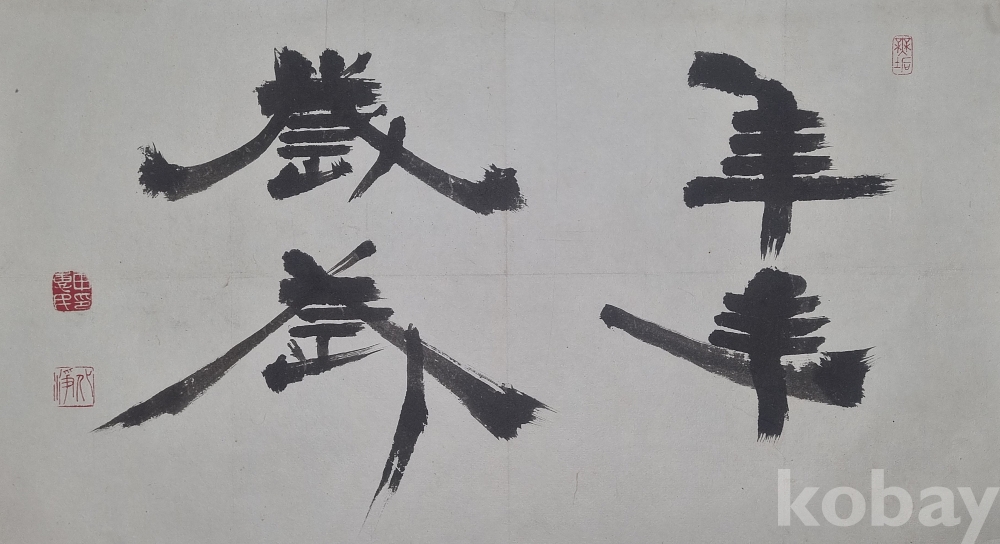 年年
歲歲
無垢
kobay